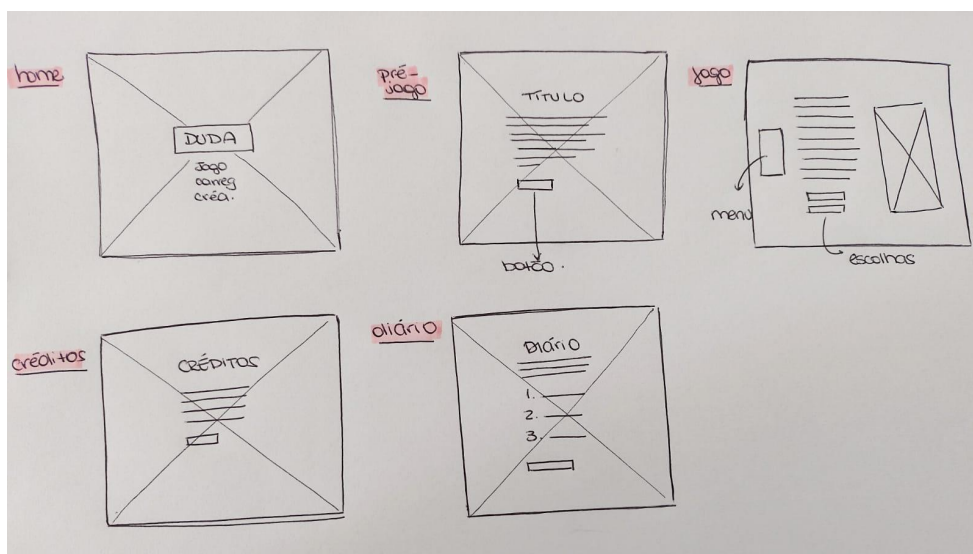 home
DUDA
Jogo
carreg
créd.
pré-
jogo
TÍTULO
botão.
jogo
menu
escolhas
créditos
CRÉDITOS
diário
DIÁRIO
1.
2.
3.